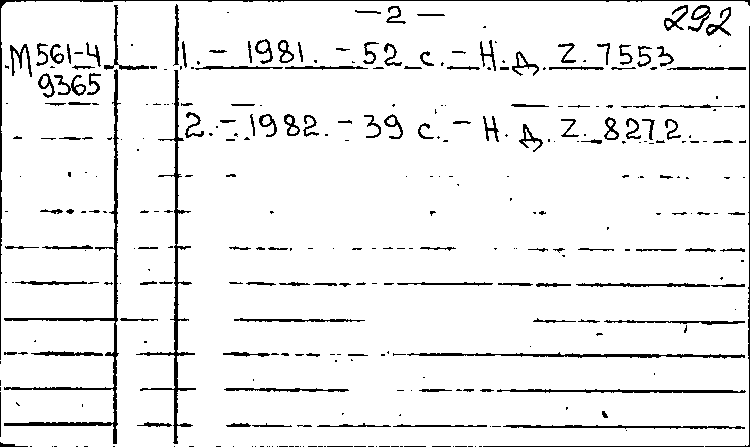 — 2 —
292
М 561-4
9365
1. – 1981. – 52 с. – Н. д. Z. 7553
2. – 1982. – 39 с. – Н. д. Z. 8272.